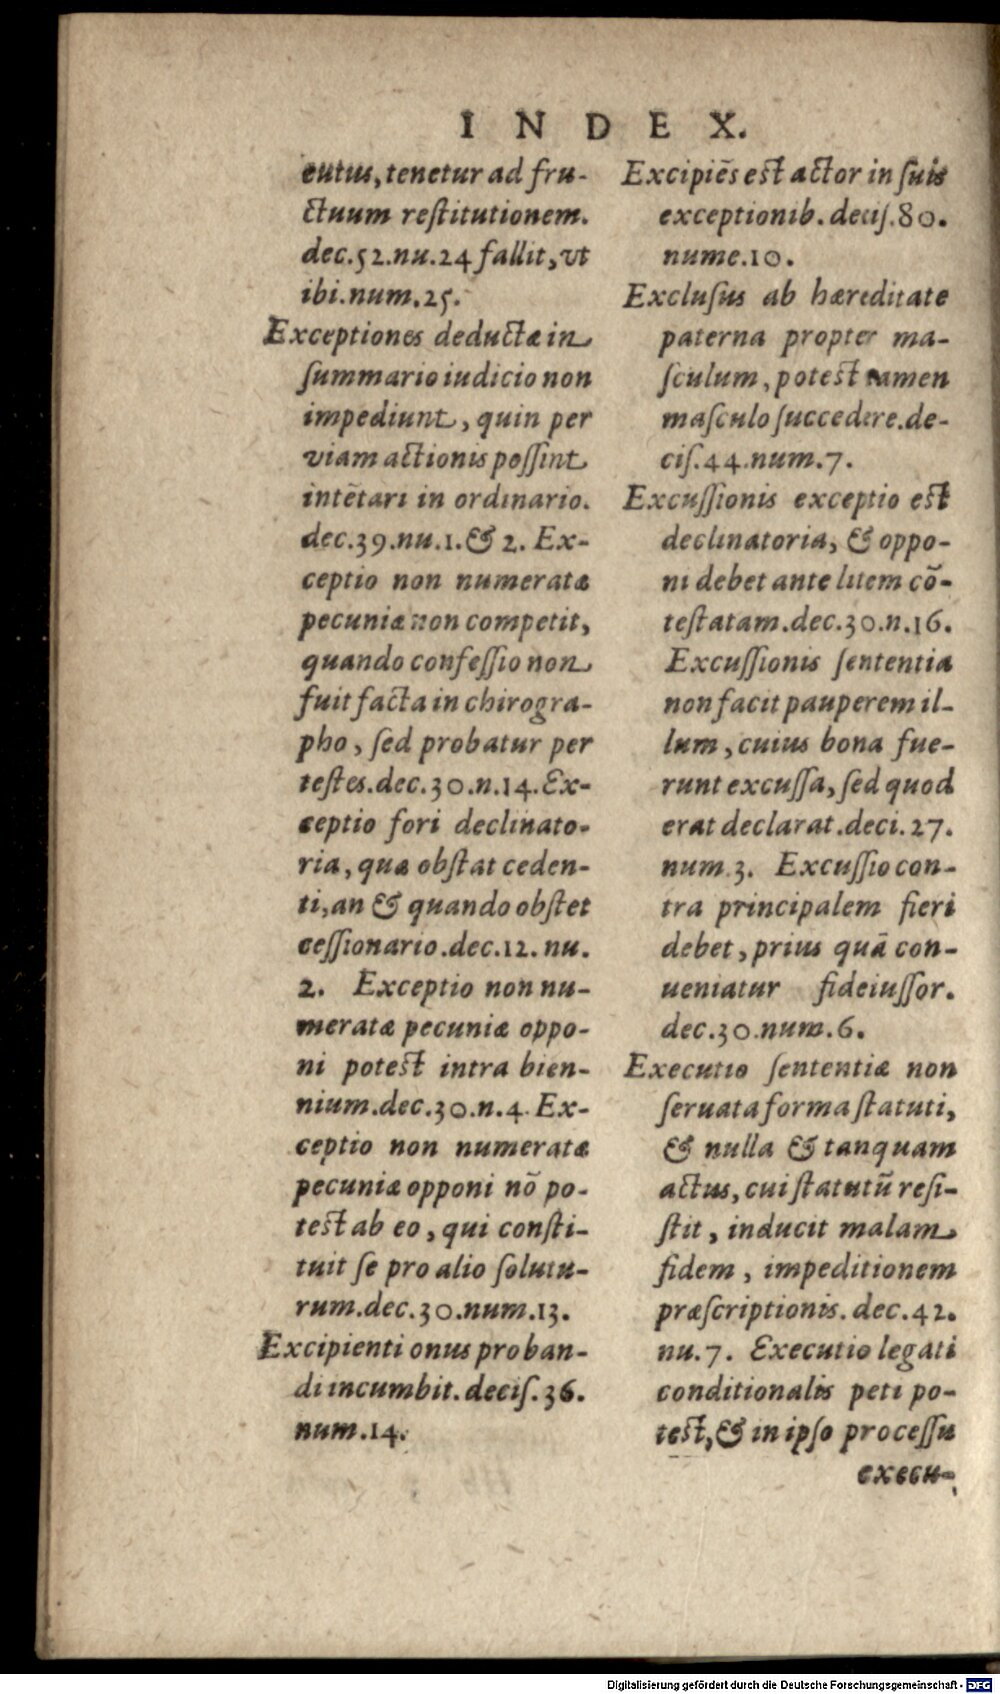 INDEX.
eutus, tenetur ad fru-
ctuum reſtitutionem.
dec.52.nu.24 fallit, vt
ibi.num.25.
Exceptiones deductæ in
ſummario iudicio non
impediunt, quin per
viam actionis poſſint
intētari in ordinario.
dec.39.nu.1.& 2. Ex-
ceptio non numeratæ
pecuniæ non competit,
quando confeſſio non
fuit facta in chirogra-
pho, ſed probatur per
teſtes.dec.30.n.14. Ex-
ceptio fori declinato-
ria, quæ obſtat ceden-
ti, an & quando obſtet
ceſſionario.dec.12.nu.
2. Exceptio non nu-
meratæ pecuniæ oppo-
ni poteſt intra bien-
nium.dec.30.n.4. Ex-
ceptio non numeratæ
pecuniæ opponi nō po-
teſt ab eo, qui conſti-
tuit ſe pro alio ſolutu-
rum.dec.30.num.13.
Excipienti onus proban-
di incumbit.deciſ.36.
num.14.
Excipiēs eſt actor in ſuis
exceptionib.deciſ.80.
nume.10.
Excluſus ab hæreditate
paterna propter ma-
ſculum, poteſt tamen
maſculo ſuccedere.de-
ciſ.44.num.7.
Excuſſionis exceptio eſt
declinatoria, & oppo-
ni debet ante litem cō-
teſtatam.dec.30.n.16.
Excuſſionis ſententia
non facit pauperem il-
lum, cuius bona fue-
runt excuſſa, ſed quod
erat declarat.deci.27.
num.3. Excuſſio con-
tra principalem fieri
debet, prius quā con-
ueniatur fideiuſſor.
dec.30.num.6.
Executio ſententiæ non
ſeruata forma ſtatuti,
& nulla & tanquam
actus, cui ſtatutū reſi-
ſtit, inducit malam
fidem, impeditionem
præſcriptionis.dec.42.
nu.7. Executio legati
conditionalis peti po-
teſt, & in ipſo proceſſu
execu-
Digitalisierung gefördert durch die Deutsche Forschungsgemeinschaft - DFG